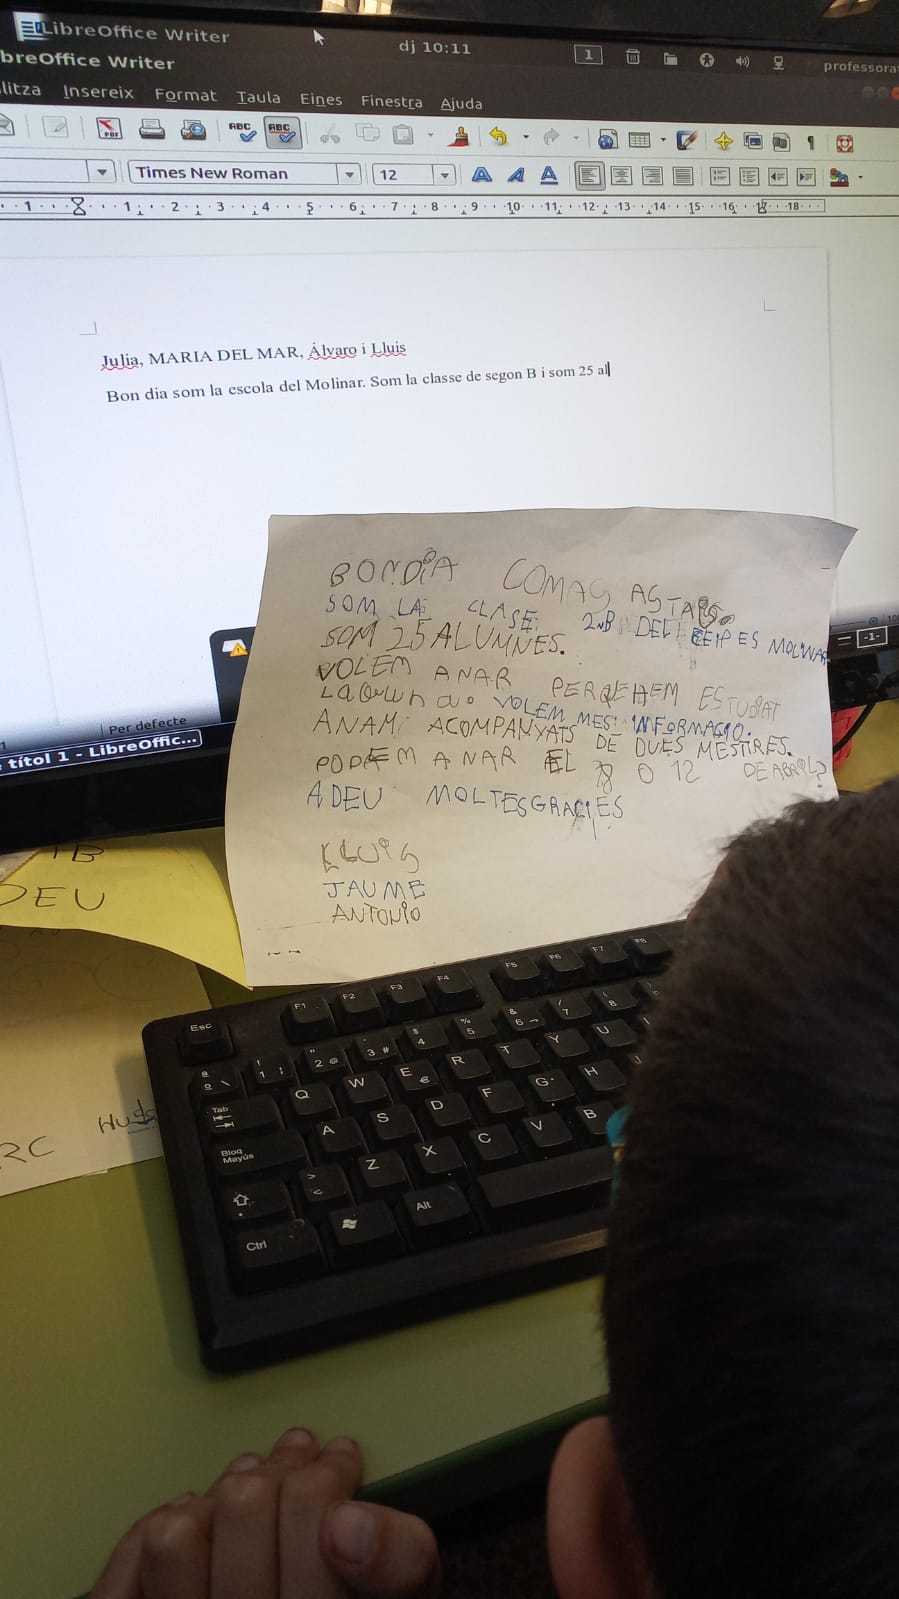 LibreOffice Writer
dj 10:11
1
professora
breOffice Writer
litza Insereix Format Taula Eines Finestra Ajuda
PDF ABC ABC
Times New Roman 12
1 1 2 3 4 5 6 7 8 9 10 11 12 13 14 15 16 17 18
Julia, MARIA DEL MAR, Álvaro i Lluis
Bon dia som la escola del Molinar. Som la classe de segon B i som 25 al
BONDIA COMAS ASTAPS
SOM LA CLASE 2NB DEL CEIP ES MOLINAR
SOM 25 ALUMNES.
VOLEM ANAR PERQEHEM ESTUDIAT
LA VOLEM MES INFORMACIO.
ANAM ACOMPANYATS DE DUES MESTRES.
PODEM ANAR EL 8 O 12 DE ABRIL?
ADEU MOLTESGRACIES
LLUIS
JAUME
ANTONIO
Per defecte
-1-
títol 1 - LibreOffic...
B
DEU
RC
Esc F1 F2 F3 F4 F5 F6 F7 F8
1 2 @ 3 # 4 5 6 7 8
Tab Q W E € R T Y U
Bloq Mayús A S D F G H
Z X C V B
Ctrl Alt